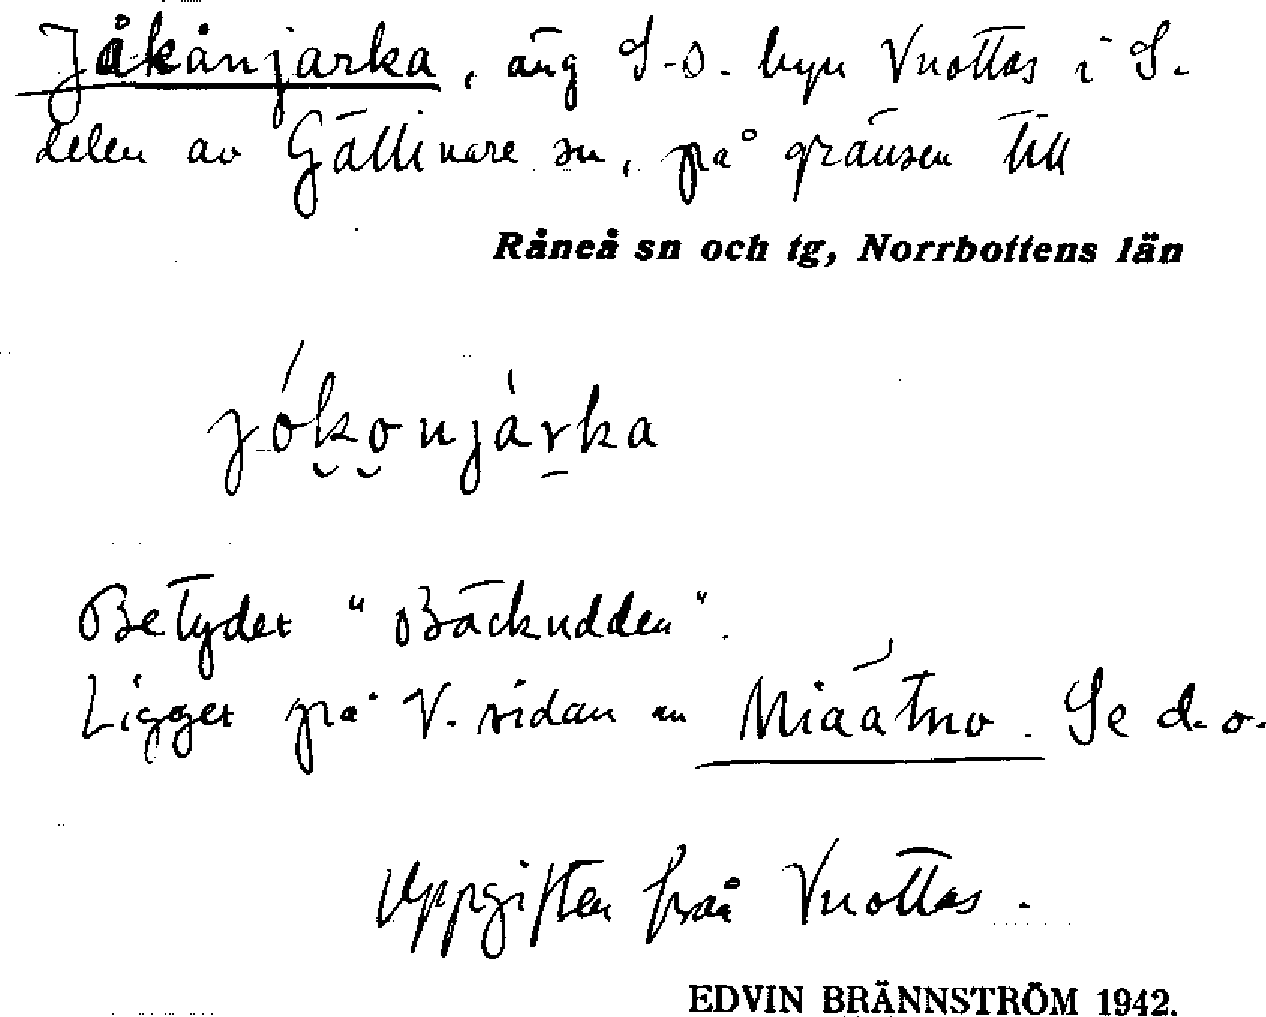 Jåkånjarka, äng S-o. byn Vuottas i S.
delen av Gällivare sn, på gränsen till
Råneå sn och tg, Norrbottens län
jókonjàrka
Betyder "Bäckudden".
Ligger på V. sidan av Miäätno. Se d. o.
Uppgiften från Vuottas.
EDVIN BRÄNNSTRÖM 1942.